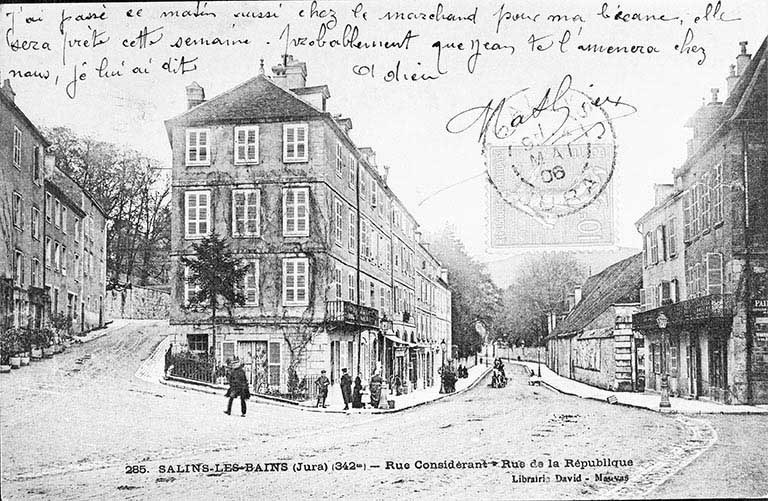 J'ai passé ce matin aussi chez le marchand pour ma bécane, elle
sera prête cette semaine. probablement que Jean te l'amenera chez
nous, je lui ai dit Adieu
Mathieu
MAI
06
JURA
10
PAI
285. SALINS-LES-BAINS (Jura) (342m) — Rue Considérant - Rue de la République
Librairie David - Mauvas